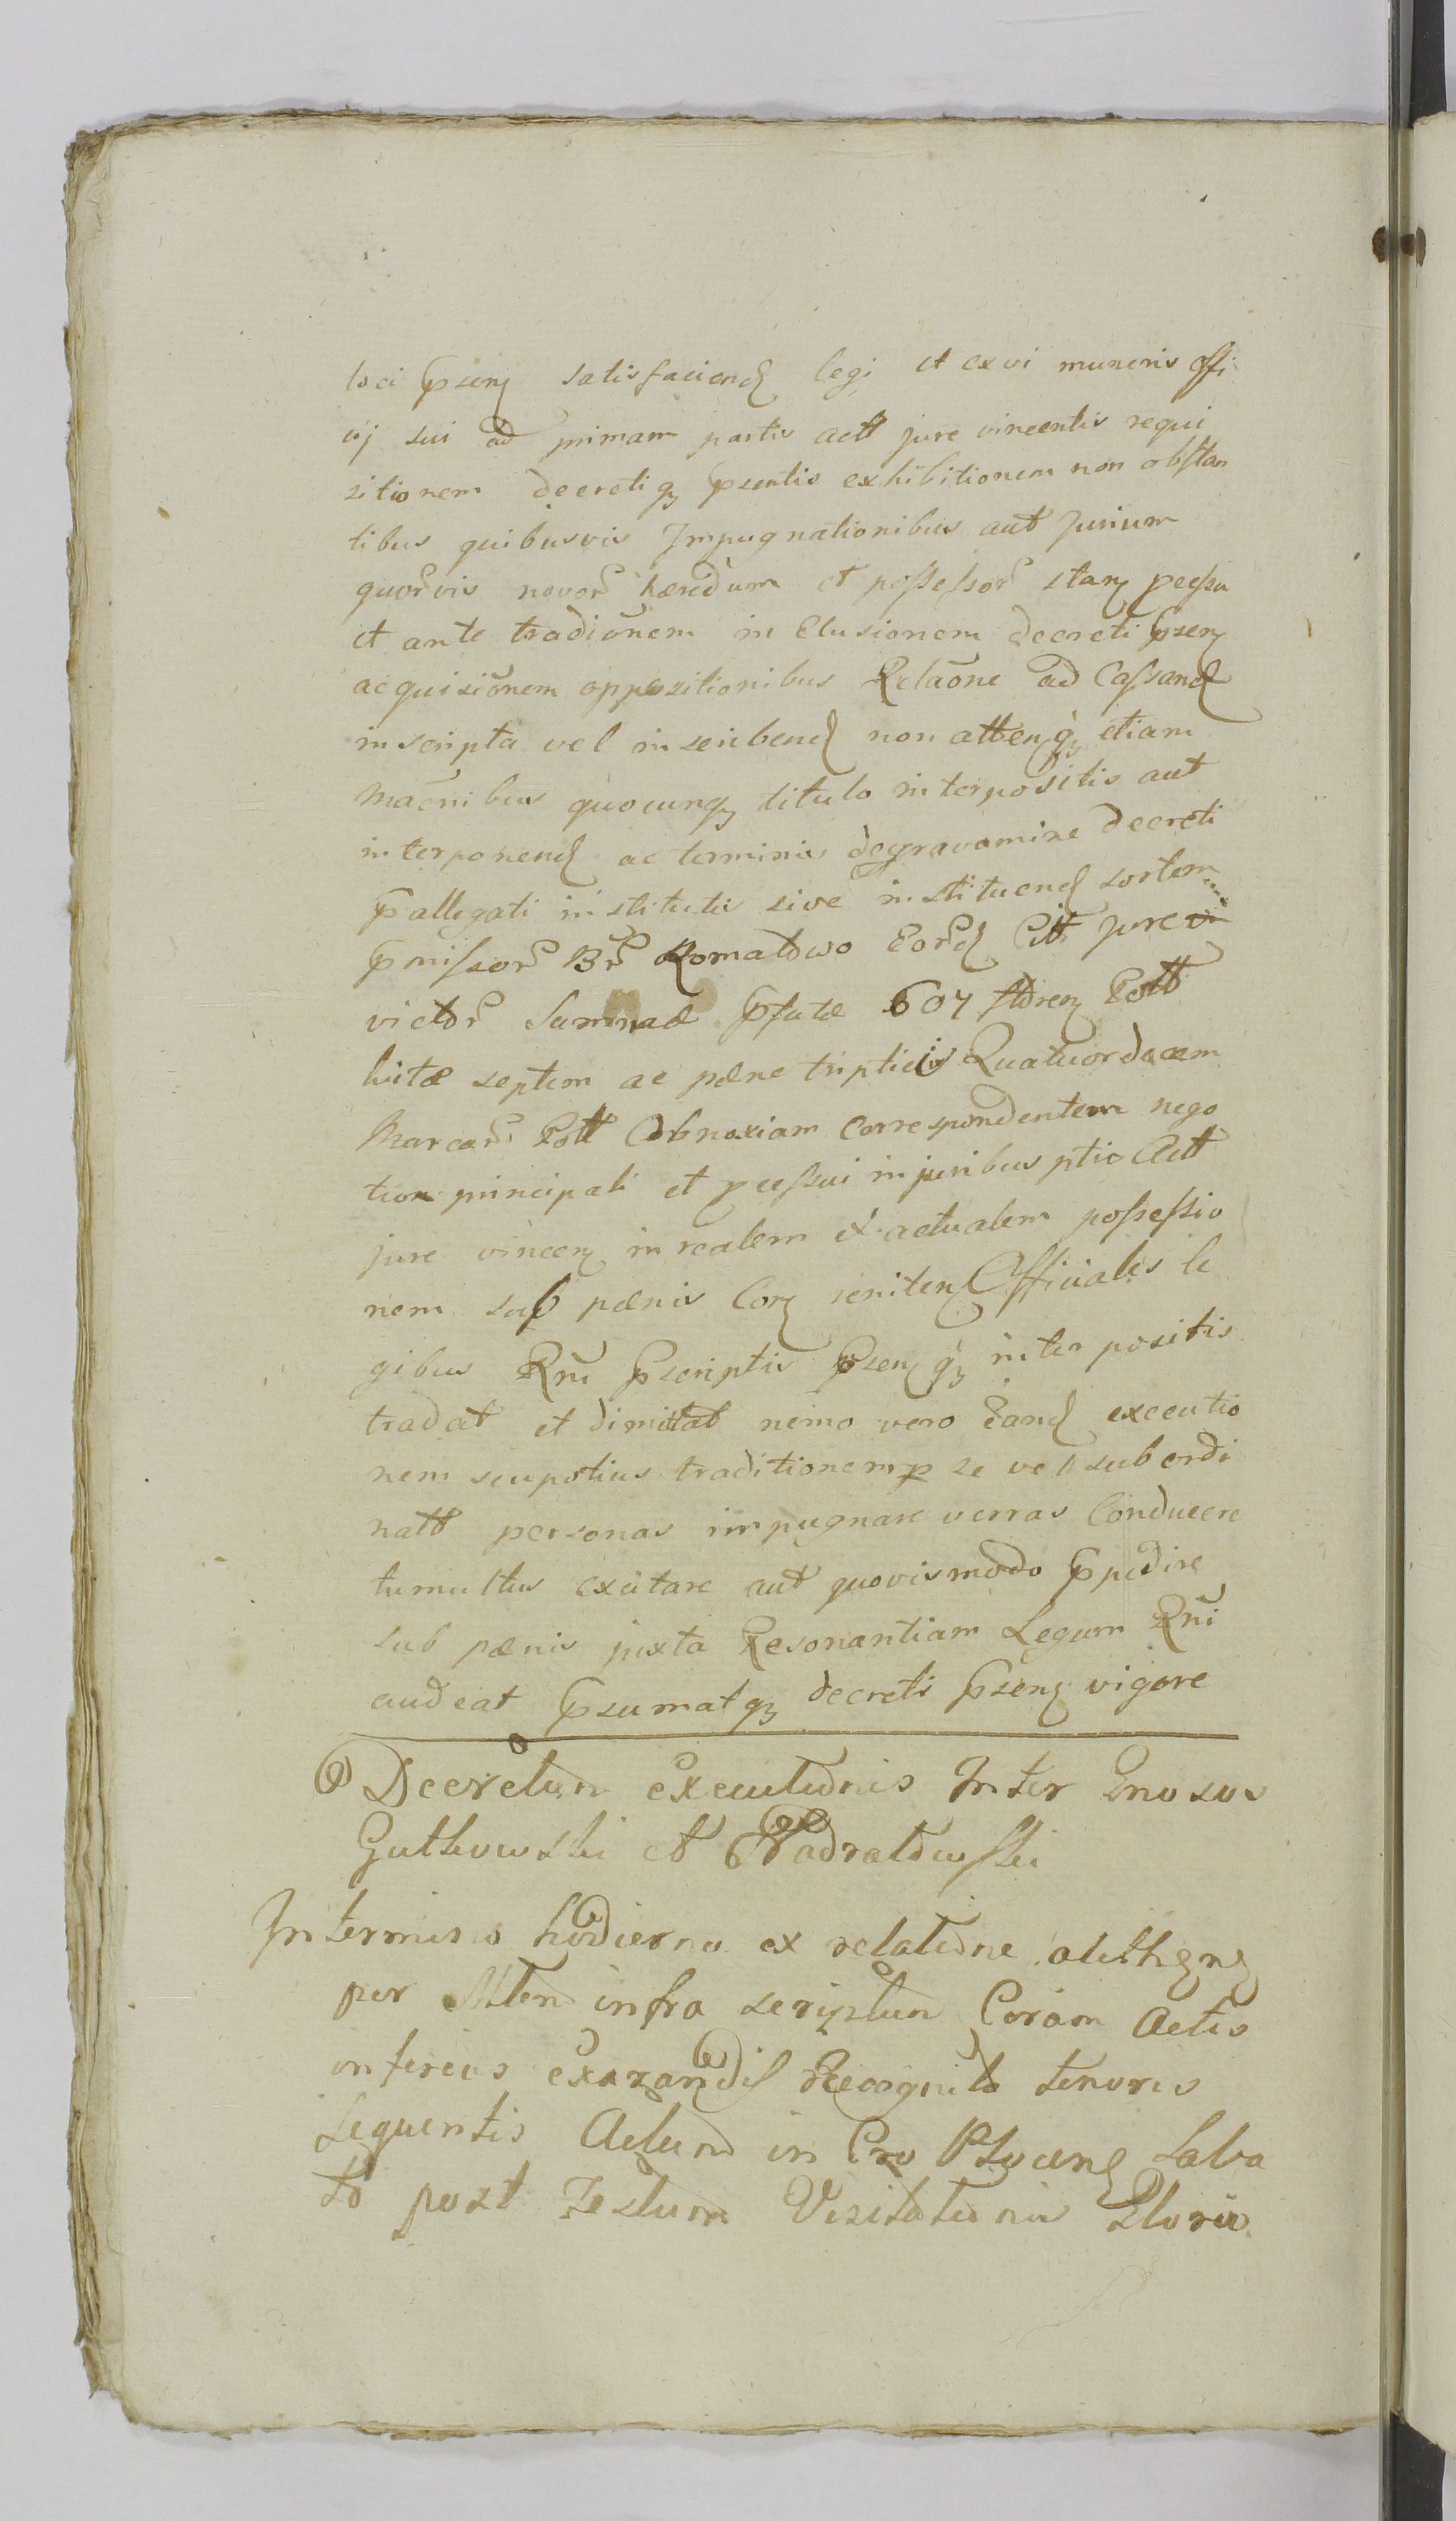 loci pseng satisfaciend legi et ex vi muneris offi
cij sui ad primam partis actt jure vincentis requi
sitionem decretiq psentis exhibitionem non obstan
tibus quibusvis Impugnationibus aut Jurium
quorvis novor hæredum et possessor stang pcessu
et ante tradiōnem in Elusionem decreti pseng
acquisiōnem oppositionibus Relaōne ad Cassand
inscripta vel inscribend non attengq etiam
maōnibus quocunq titulo interpositis aut
interponend ac terminis degravamine decreti
pallegati institutis sive instituend sortem
pmissor Br Romatowo Eord Citt jure
victor Summæ pfatæ 607 floreng Pott
luitæ septem ac pænæ triplicis Quatuordecem
Marcar Pott Obnoxiam Correspondentem nego
tion principali et pcessui in juribus ptis Actt
jure vinceng in realem et actualem possessio
nem sub pænis Corg reniteng Officiales le
gibus Rni pscriptis psengq interpositis
tradat et dimittat nemo vero Eand executio
nem seu potius traditionem p se vel subordi
natt personas impugnare verras Conducere
tumultus excitare aut quovismodo ppedire
sub pænis juxta Resonantiam Legum Rni
audeat psumatq decreti pseng vigore
Decretum executionis Inter Gnosos
Gutkowski et Nadratowski
In termino hodierno ex relatione
per Mten infra scriptum Coram Actis
inferius exarandis Recognita tenoris
sequentis Actum in Cro Ploceng Sabba
to post Festum Visitationis Glorio